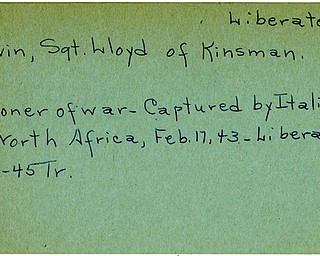 Liberate
vin, Sgt. Lloyd of Kinsman.
oner of war - Captured by Itali
North Africa, Feb. 17, 43 - Libera
-45 Tr.